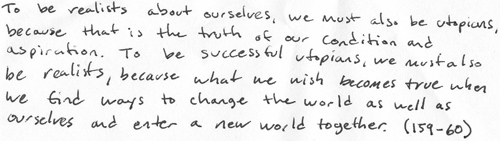 To be realists about ourselves, we must also be utopians,
because that is the truth of our condition and
aspiration. To be successful utopians, we must also
be realists, because what we wish becomes true when
we find ways to change the world as well as
ourselves and enter a new world together. (159-60)